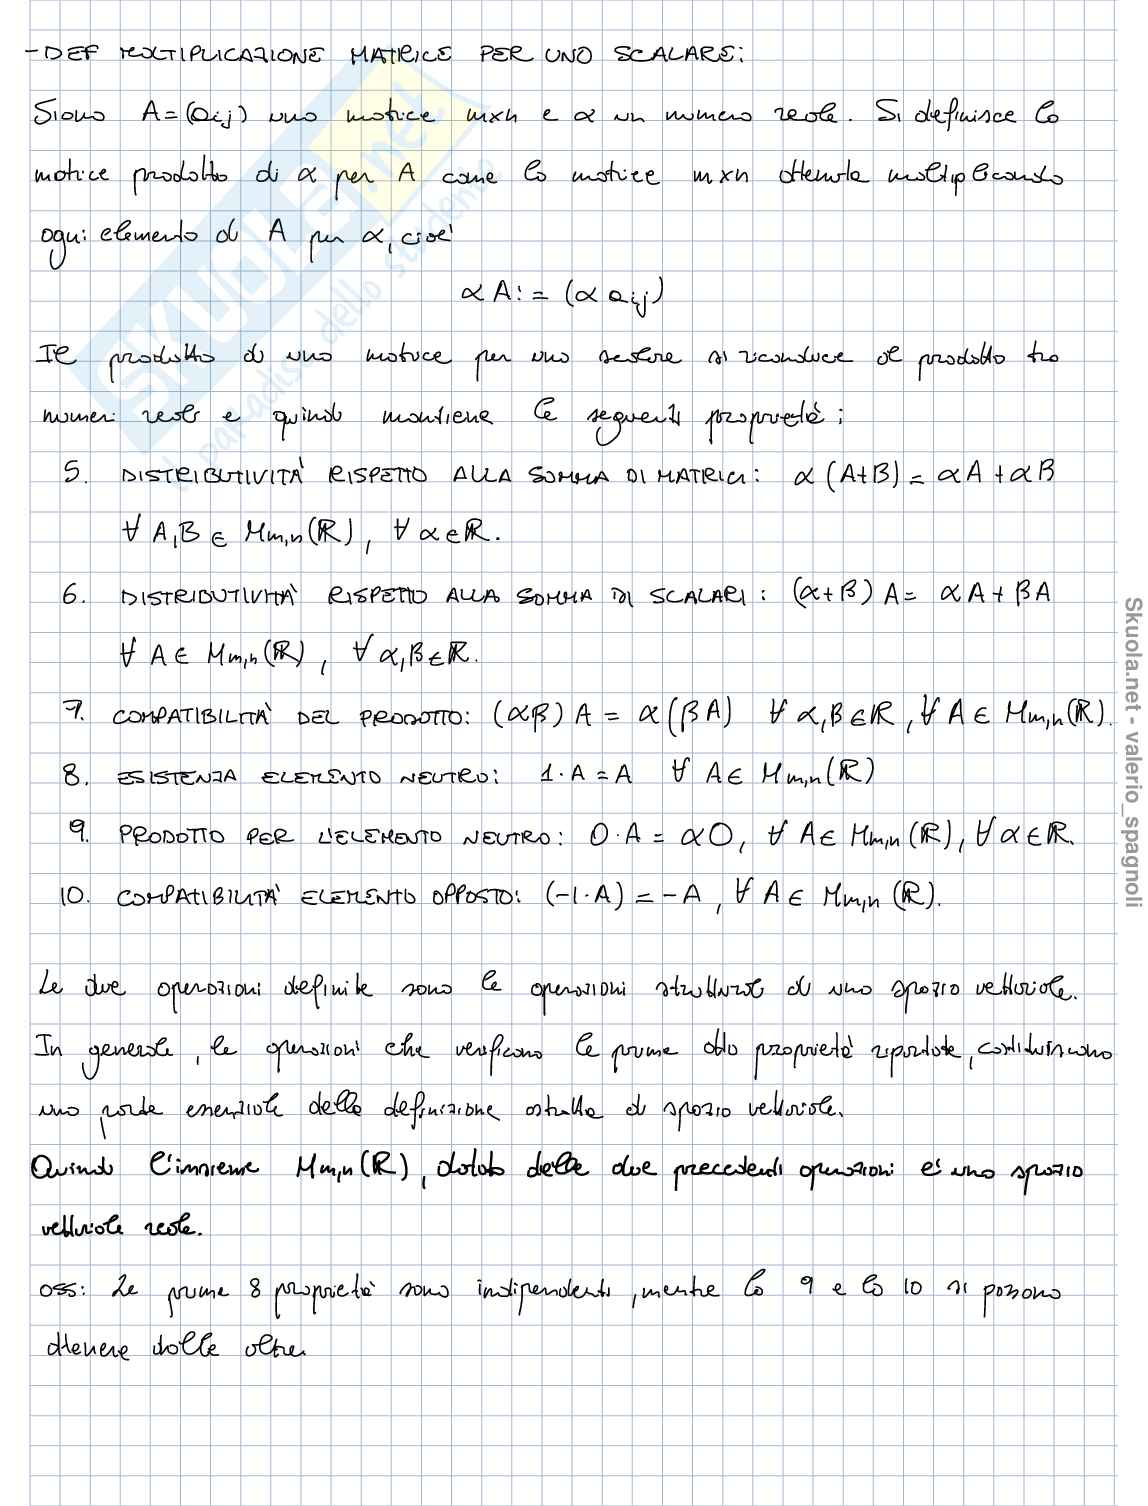 - DEF MOLTIPLICAZIONE MATRICE PER UNO SCALARE:
Siano A=(aij) una matrice mxn e α un numero reale. Si definisce la
matrice prodotto di α per A come la matrice mxn ottenuta moltiplicando
ogni elemento di A per α, cioè
αA:=(α aij)
Il prodotto di una matrice per uno scalare si riconduce al prodotto tra
numeri reali e quindi mantiene le seguenti proprietà:
5. DISTRIBUTIVITÀ RISPETTO ALLA SOMMA DI MATRICI: α(A+B)=αA+αB
∀ A,B ∈ Mm,n(ℝ), ∀ α∈ℝ.
6. DISTRIBUTIVITÀ RISPETTO ALLA SOMMA DI SCALARI: (α+β)A= αA+βA
∀ A∈ Mm,n(ℝ), ∀ α,β∈ℝ.
7. COMPATIBILITÀ DEL PRODOTTO: (αβ)A = α(βA) ∀ α,β∈ℝ, ∀ A∈ Mm,n(ℝ).
8. ESISTENZA ELEMENTO NEUTRO: 1·A=A ∀ A∈ Mm,n(ℝ)
9. PRODOTTO PER L'ELEMENTO NEUTRO: 0·A=α0, ∀ A∈ Mm,n(ℝ), ∀ α∈ℝ.
10. COMPATIBILITÀ ELEMENTO OPPOSTO: (-1·A)=-A, ∀ A∈ Mm,n(ℝ).
Le due operazioni definite sono le operazioni strutturali di uno spazio vettoriale.
In generale, le operazioni che verificano le prime otto proprietà riportate, costituiscono
una parte essenziale della definizione astratta di spazio vettoriale.
Quindi l'insieme Mm,n(ℝ), dotato delle due precedenti operazioni è uno spazio
vettoriale reale.
OSS: Le prime 8 proprietà sono indipendenti, mentre la 9 e la 10 si possono
ottenere dalle altre.
SKUOLA.net
il paradiso dello studente
Skuola.net - valerio_spagnoli